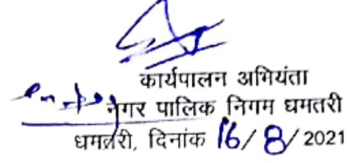 कार्यपालन अभियंता
नगर पालिक निगम धमतरी
धमतरी, दिनांक 16/8/2021